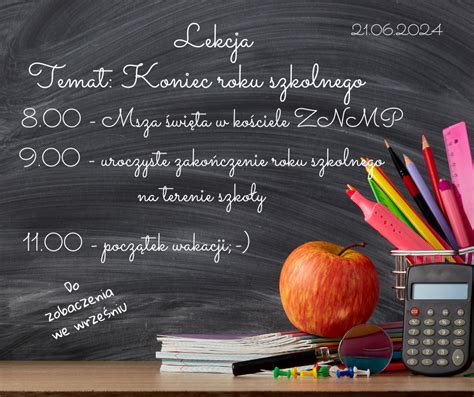 Lekcja
21.06.2024
Temat: Koniec roku szkolnego
8.00 - Msza święta w kościele ZNMP
9.00 - uroczyste zakończenie roku szkolnego
na terenie szkoły
11.00 - początek wakacji; -)
Do
zobaczenia
we wrześniu